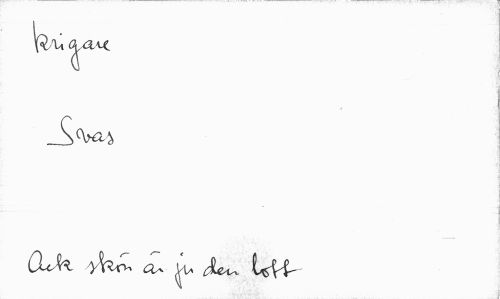 krigare
Svas
Ack skön är ju den lott